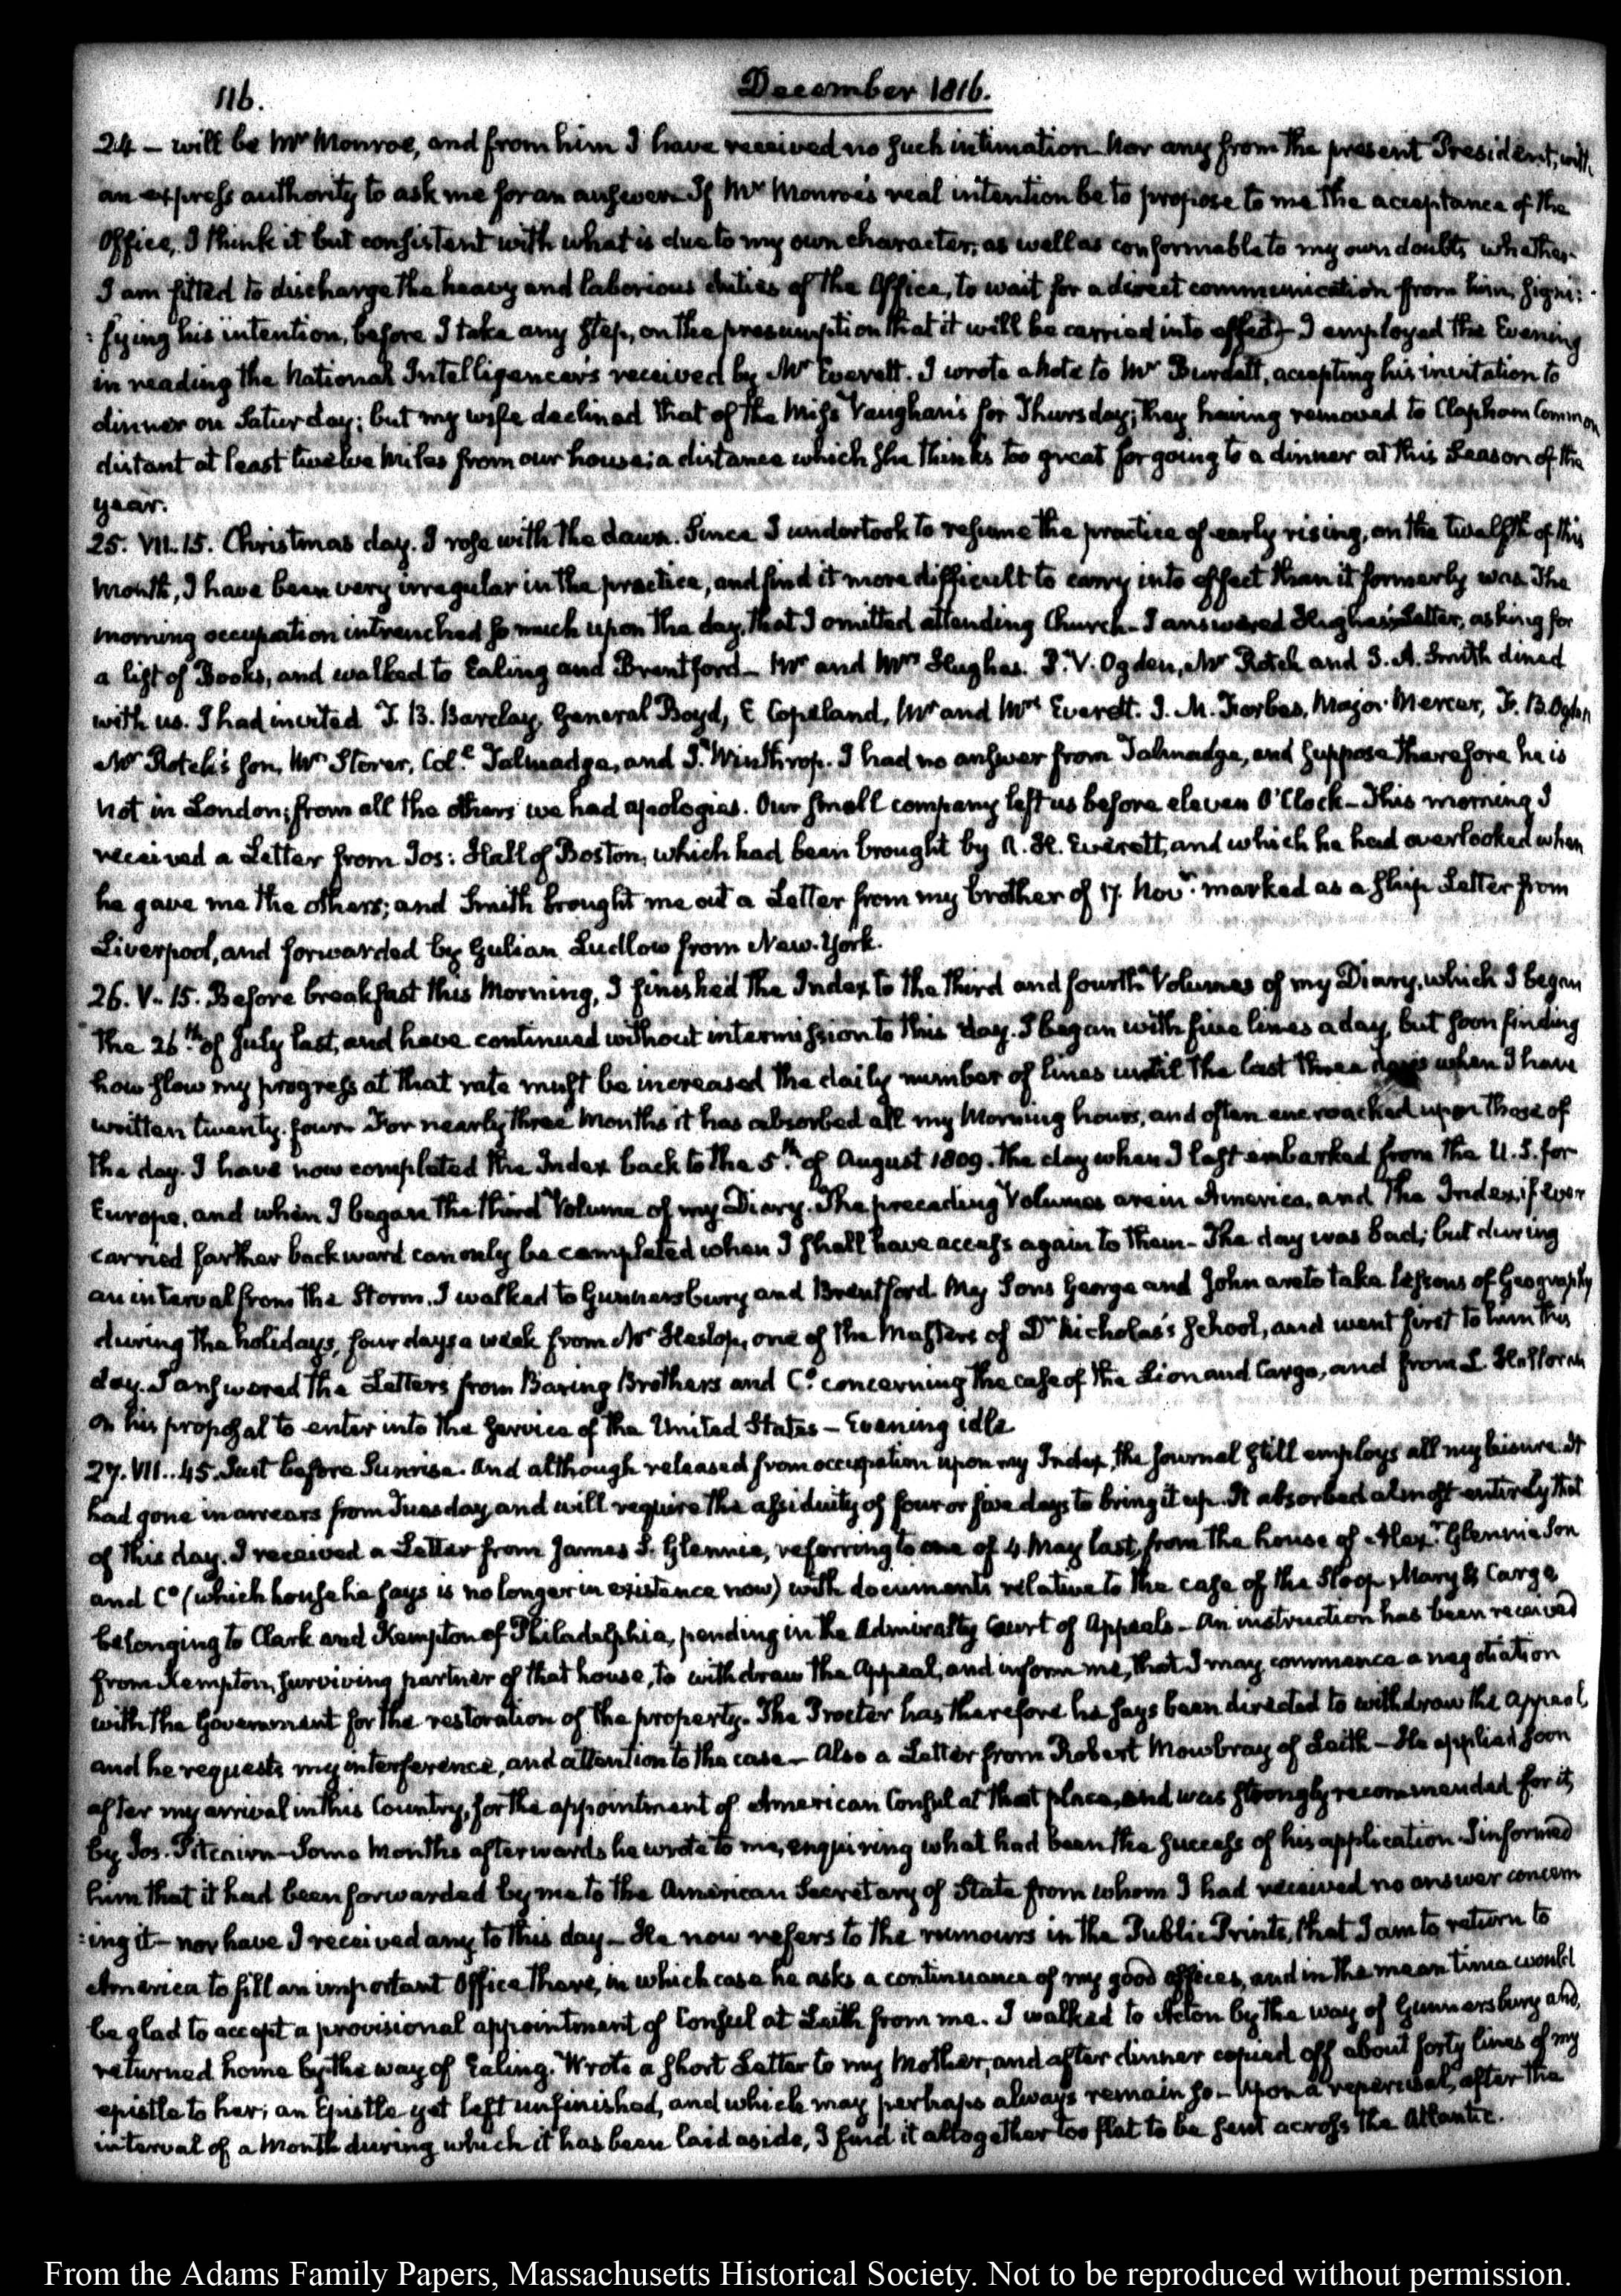 116.
December 1816.
24 – will be Mr Monroe, and from him I have received no such intimation – Nor any from the present President, with
an express authority to ask me for an answer. If Mr Monroe's real intention be to propose to me the acceptance of the
Office, I think it but consistent with what is due to my own character, as well as conformable to my own doubts whether
I am fitted to discharge the heavy and laborious duties of the Office, to wait for a direct communication from him, signi:
:fying his intention, before I take any step, on the presumption that it will be carried into effect – I employed the Evening
in reading the National Intelligencers received by Mr Everett. I wrote a Note to Mr Burdett, accepting his invitation to
dinner on Saturday; but my wife declined that of the Miss Vaughan's for Thursday; they having removed to Clapham Common
distant at least twelve miles from our house; a distance which she thinks too great for going to a dinner at this Season of the
year.
25. VII. 15. Christmas day. I rose with the dawn. Since I undertook to resume the practice of early rising, on the twelfth of this
Month, I have been very irregular in the practice, and find it more difficult to carry into effect than it formerly was. The
morning occupation intrenched so much upon the day, that I omitted attending Church – I answered Hughes's Letter, asking for
a list of Books, and walked to Ealing and Brentford – Mr and Mrs Hughes. D. V. Ogden, Mr Rotch and J. A. Smith dined
with us. I had invited T. B. Barclay, General Boyd, E Copeland, Mr and Mrs Everett. J. M. Forbes, Major Mercer, F. B. Ogden
Mr Rotch's son, Mr Storer, Col.l Talmadge, and J. Winthrop. I had no answer from Talmadge, and suppose therefore he is
not in London; from all the others we had apologies. Our small company left us before eleven O'Clock – This morning I
received a Letter from Jos: Hall of Boston, which had been brought by A. H. Everett, and which he had overlooked when
he gave me the others; and Smith brought me out a Letter from my brother of 17. Novr. marked as a ship Letter from
Liverpool, and forwarded by Gulian Ludlow from New-York.
26. V. 15. Before breakfast this Morning, I finished the Index to the third and fourth Volumes of my Diary, which I began
the 26th. of July last, and have continued without intermission to this day. I began with five lines a day, but soon finding
how slow my progress at that rate must be increased the daily number of lines until the last three days when I have
written twenty-four. For nearly three Months it has absorbed all my Morning hours, and often encroached upon those of
the day. I have now completed the Index back to the 5th. of August 1809. the day when I last embarked from the U. S. for
Europe, and when I began the third Volume of my Diary. The preceding Volumes are in America, and the Index, if ever
carried farther backward can only be completed when I shall have access again to them – The day was bad; but during
an interval from the Storm. I walked to Gunnersbury and Brentford. My Sons George and John are to take lessons of Geography
during the holidays, four days a week from Mr Heslop, one of the Masters of Dr Nicholas's school, and went first to him this
day. I answered the Letters from Baring Brothers and Co. concerning the case of the Lion and Cargo, and from L.
on his proposal to enter into the service of the United States – Evening idle
27. VII.. 45. Just before Sunrise. And although released from occupation upon my Index, the Journal still employs all my leisure. It
had gone in arrears from Tuesday and will require the assiduity of four or five days to bring it up. It absorbed almost entirely that
of this day. I received a Letter from James S. Glennie, referring to one of 4. May last, from the house of Alexr. Glennie Son
and Co (which house he says is no longer in existence now) with documents relative to the case of the Sloop Mary & Cargo,
belonging to Clark and Kempton of Philadelphia, pending in the Admiralty Court of Appeals – An instruction has been received
from Kempton, surviving partner of that house, to withdraw the Appeal, and inform me, that I may commence a negotiation
with the Government for the restoration of the property. The Procter has therefore he says been directed to withdraw the Appeal,
and he requests my interference, and attention to the case – Also a Letter from Robert Mowbray of Leith – He applied soon
after my arrival in this Country, for the appointment of American Consul at that place, and was strongly recommended for it,
by Jos. Pitcairn – Some Months afterwards he wrote to me, enquiring what had been the success of his application. I informed
him that it had been forwarded by me to the American Secretary of State from whom I had received no answer concern
:ing it – nor have I received any to this day – He now refers to the rumours in the Public Prints, that I am to return to
America to fill an important Office there, in which case he asks a continuance of my good offices, and in the mean time would
be glad to accept a provisional appointment of Consul at Leith from me. I walked to Acton by the way of Gunnersbury and
returned home by the way of Ealing. Wrote a short Letter to my Mother, and after dinner copied off about forty lines of my
epistle to her; an Epistle yet left unfinished, and which may perhaps always remain so – Upon a reperusal, after the
interval of a Month during which it has been laid aside, I find it altogether too flat to be sent across the Atlantic.
From the Adams Family Papers, Massachusetts Historical Society. Not to be reproduced without permission.